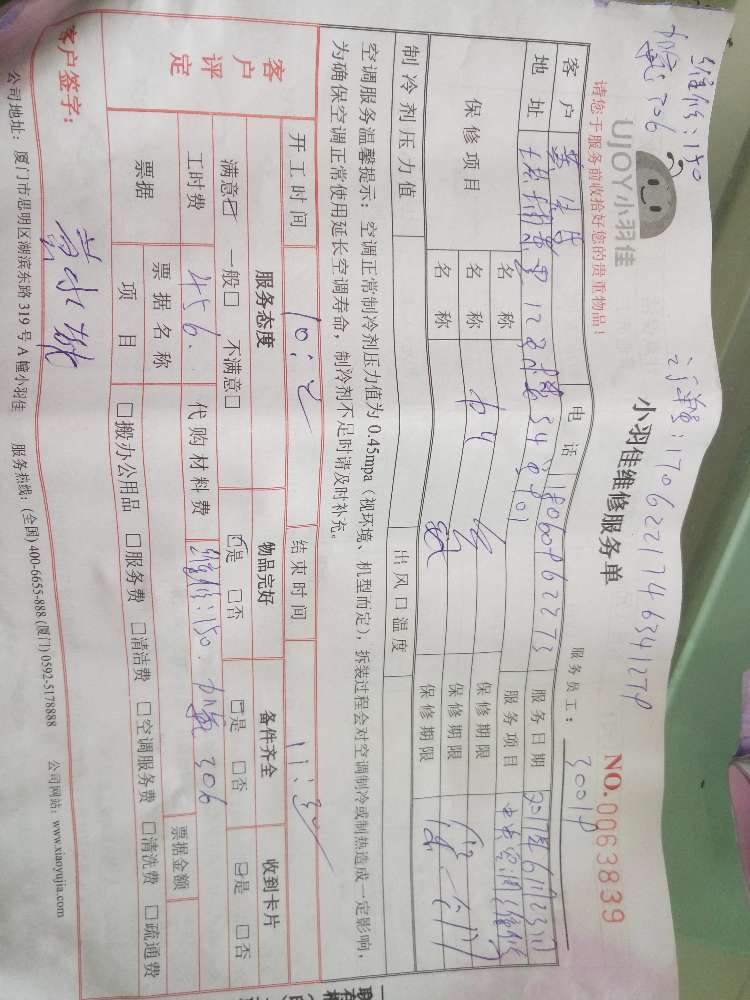 维修:150
加氟306
订单号:170622174634127P
UJOY小羽佳
小羽佳维修服务单
NO.0063839
请您于服务前收拾好您的贵重物品!
服务员工:
3001P
客户
电话
服务日期
2017年6月23日
地址
服务项目
中央空调维修
保修项目
名称
保修期限
名称
保修期限
名称
保修期限
制冷剂压力值
出风口温度
空调服务温馨提示:空调正常制冷剂压力值为 0.45mpa(视环境、机型而定),拆装过程会对空调制冷或制热造成一定影响,
为确保空调正常使用延长空调寿命,制冷剂不足时请及时补充。
开工时间
结束时间
11:30
客户评定
服务态度
物品完好
备件齐全
收到卡片
满意☑ 一般□ 不满意□
☑是 □否
☑是 □否
☑是 □否
工时费
456.
代购材料费
维修:150. 加氟306
票据
票据名称
票据金额
项目
□搬办公用品 □服务费 □清洁费 □空调服务费 □清洗费 □疏通费
客户签字:
公司地址:厦门市思明区湖滨东路 319 号 A 幢小羽佳 服务热线:(全国) 400-6655-888 (厦门) 0592-5178888 公司网站:www.xiaoyujia.com